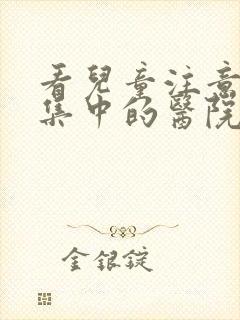 看兒童注意
集中的醫院
金銀錠